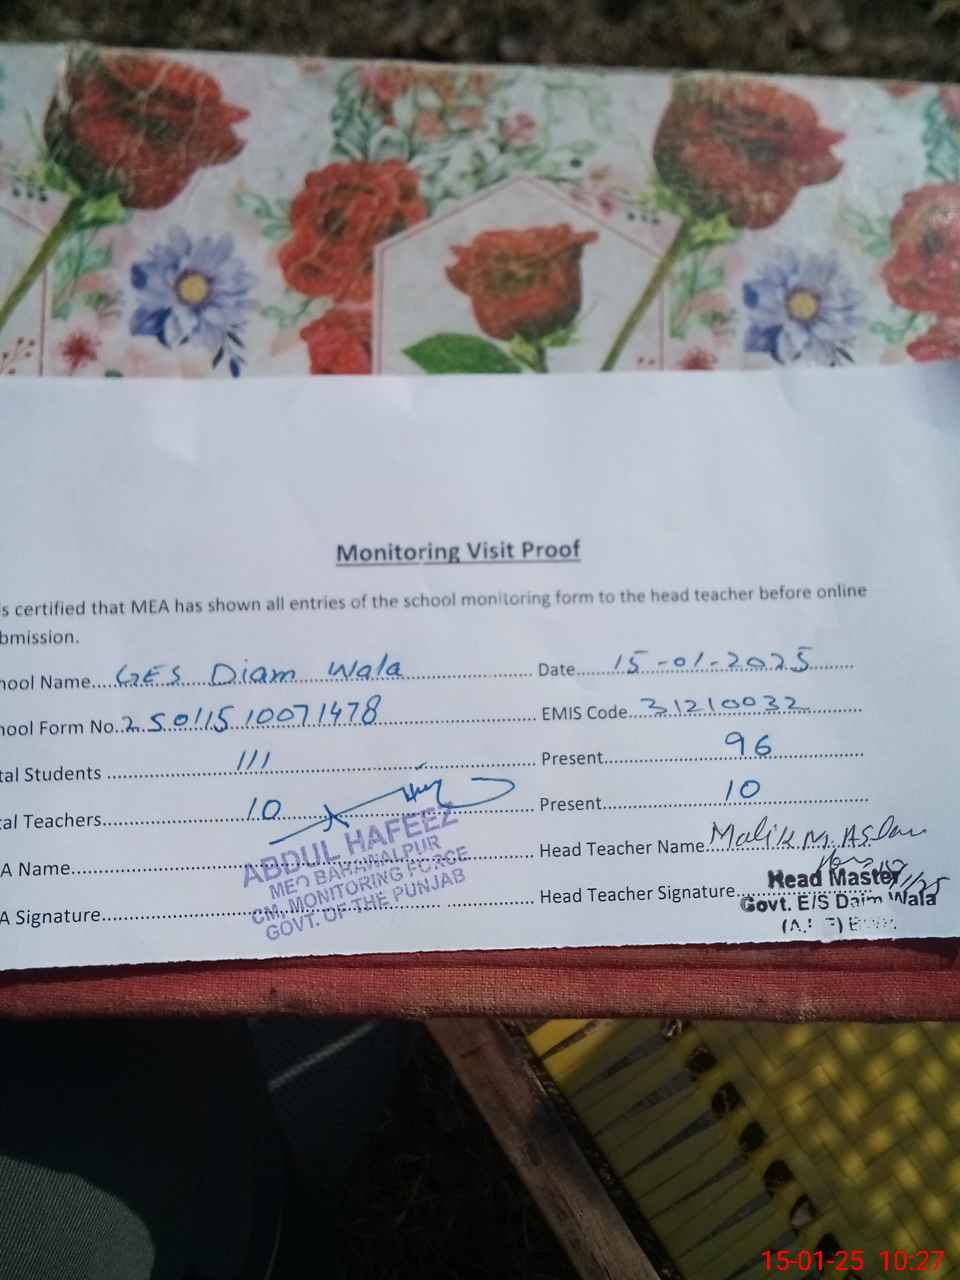 Monitoring Visit Proof
s certified that MEA has shown all entries of the school monitoring form to the head teacher before online
bmission.
hool Name....GES Diam Wala.... Date....15-01-2025....
hool Form No..25011510071478.... EMIS Code...31210032....
tal Students ....111.... Present....96....
al Teachers....10.... Present....10....
A Name.... Head Teacher Name..Malik M. Aslam
A Signature.... Head Teacher Signature....
ABDUL HAFEEZ
MEO BAHAWALPUR
CM, MONITORING FORCE
GOVT. OF THE PUNJAB
Head Master
Govt. E/S Daim Wala
15-01-25 10:27